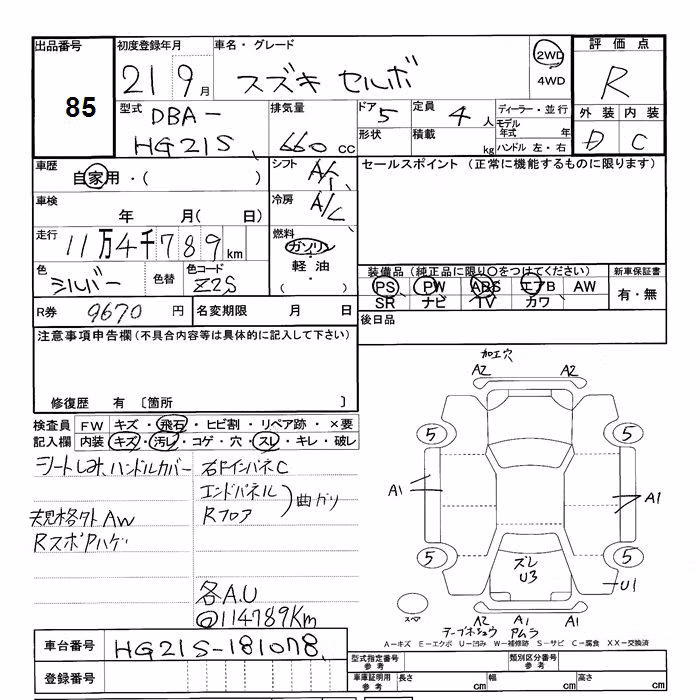 出品番号
85
初度登録年月
21 9 月
車名・グレード
スズキ セルボ
2WD
4WD
評価点
R
外装 内装
D C
型式
DBA-
HG21S
排気量
660 cc
ドア 5
形状
定員 4 人
積載 kg
ディーラー・並行
モデル年式 年
ハンドル 左・右
車歴
自家用・( )
車検
年 月( 日)
走行
11万4千789 km
色
シルバー
色替
色コード
Z2S
シフト
A/T
冷房
A/C
燃料
ガソリン
・
軽油
・
( )
セールスポイント (正常に機能するものに限ります)
装備品(純正品に限り〇をつけてください)
PS PW ABS エアB AW
SR ナビ TV カワ
新車保証書
有・無
R券 9670 円
名変期限 月 日
後日品
注意事項申告欄(不具合内容等は具体的に記入して下さい)
修復歴 有 〔箇所 〕
検査員 FW キズ・飛石・ヒビ割・リペア跡・×要
記入欄 内装 キズ・汚レ・コゲ・穴・スレ・キレ・破レ
シートしみ、ハンドルカバー
右ドインパネC
エンドパネル
Rフロア
曲がり
規格外AW
RスポPハゲ
各A.U
@114789Km
加工穴
A2 A2
5 5
A1 A1
5 5
ズレ
U3
U1
スペア
A2 A1 A1
A=キズ E=エクボ U=凹み W=補修跡 S=サビ C=腐食 XX=交換済
車台番号 HG21S-181078
登録番号
型式指定番号
参考
類別区分番号
参考
車庫証明用
参考
長さ cm
幅 cm
高さ cm